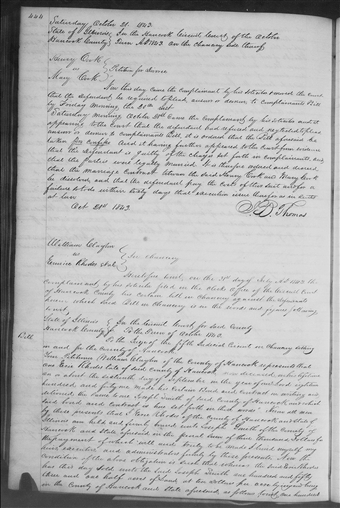 444
Saturday October 21. 1843.
State of Illinois } In the Hancock Circuit Court, of the October
Hancock County } Term AD 1843 on the chancery side thereof
Henry Cook
vs } Petition for divorce
Mary Cook
Now this day came the complainant by his attorney and moved the court
that the defendant be required to plead, answer or demur to complainants Bill
by Friday morning the 20th inst
Saturday morning October 21st Came the complainant by his attorney and it
appearing to the Court that the defendant had refused and neglected to plead
answer or demur to complainants bill it is ordered that the bill aforesaid be
taken for confess. And it having further appeared to the court from evidence
that the defendant is guilty of the charges set forth in complainants bill, and
that the parties were legally married. It is therefore ordered and decreed
that the marriage contract between the said Henry Cook and Mary Cook
be dissolved, and that the defendant pay the cost of this suit and for a
failure to do so within sixty days that execution issue therefor as on suits
at law
Oct 21st 1843 Thomas
William Clayton
vs } In Chancery
Rhodes
Heretofore towit, on the day of July AD 1843 the
Complainant, by his attorney filed in the Clerks Office of the Circuit Court
of Hancock County his certain bill in Chancery against the
which said Bill in Chancery is in the words and figures following
towit,
State of Illinois } In the Circuit Court for said County
Hancock County } To the Term of October 1843
Bill To the Judge of the fifth Judicial Circuit in Chancery sitting
in and for the county of Hancock
Your Petitioner William Clayton of the County of Hancock represents that
Rhodes late of said County of Hancock now deceased, did
on or about the sixteenth day of September in the year of our Lord eighteen
hundred and forty
Joseph Smith of said County of Hancock, and which
said bond and contract is here set forth in that words "Know all men
by these presents that I Rhodes of the County of Hancock and State of
Illinois am held and firmly bound unto Joseph Smith of the County of
Hancock and State aforesaid in the penal sum of three thousand dollars for
the payment of which well and truly to be made I bind myself my
heirs executors and administrators firmly by these presents. Now the
condition of the above obligation is such that whereas the said Rhodes
has this day sold unto the said Joseph Smith one hundred and fifty
three and one half acres of land at ten dollars per acre lying and being
in the County of Hancock and State aforesaid, as follows towit, one hundred